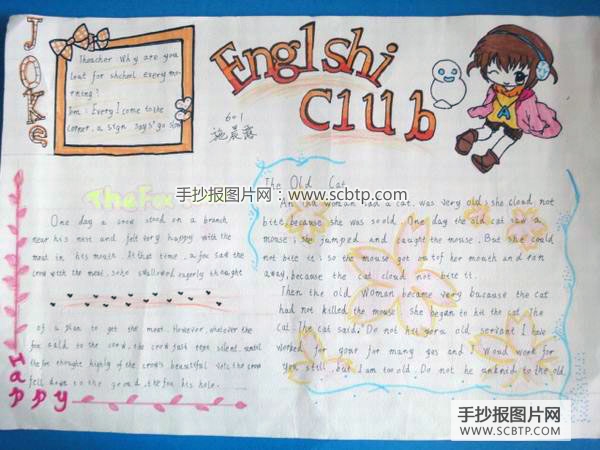 JOKE
Theacher: Why are you
leat for shchool every mo-
rning?
Tom: Every I come to the
corner. a sign says" go slow
Englshi
Club
601
A
手抄报图片网：www.scbtp.com
The Fox
One day a crow stood on a branch
near his nest and felt very happy with the
meat in his mouth. At that time, a fox saw the
crow with the meat, so he swallowed eagerly, thought
of a plan to get the meat. However, whatever the
fox said to the crow, the crow just kept silent. until
the fox thought highly of the crow's beautiful
fell down so the the fox his hole.
Happy
The Old Cat
An old woman had a cat. was very old; she cloud not
bite, because she was so old. One day the old cat saw a
mouse; she jumped and caught the mouse. But she could
not bite it; so the mouse got out of her mouth and ran
away, because the cat cloud not bite it.
Then the old woman became very bacause the cat
had not killed the mouse. she began to hit the cat. The
cat. The cat said: Do not hit your old servant I have
worked for your for many yes and I woud work for
you still, but I am too old. Do not he unkind to the old
手抄报图片网
WWW.SCBTP.COM